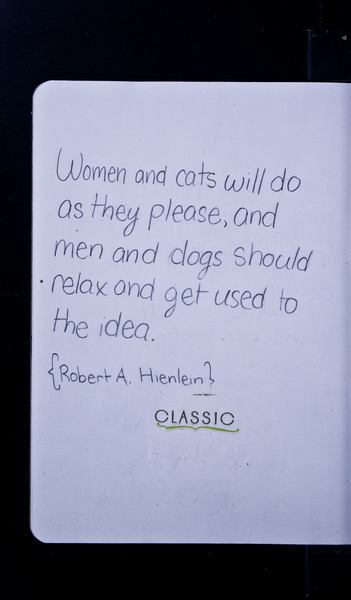 Women and cats will do
as they please, and
men and dogs should
relax and get used to
the idea.
{Robert A. Hienlein}
CLASSIC